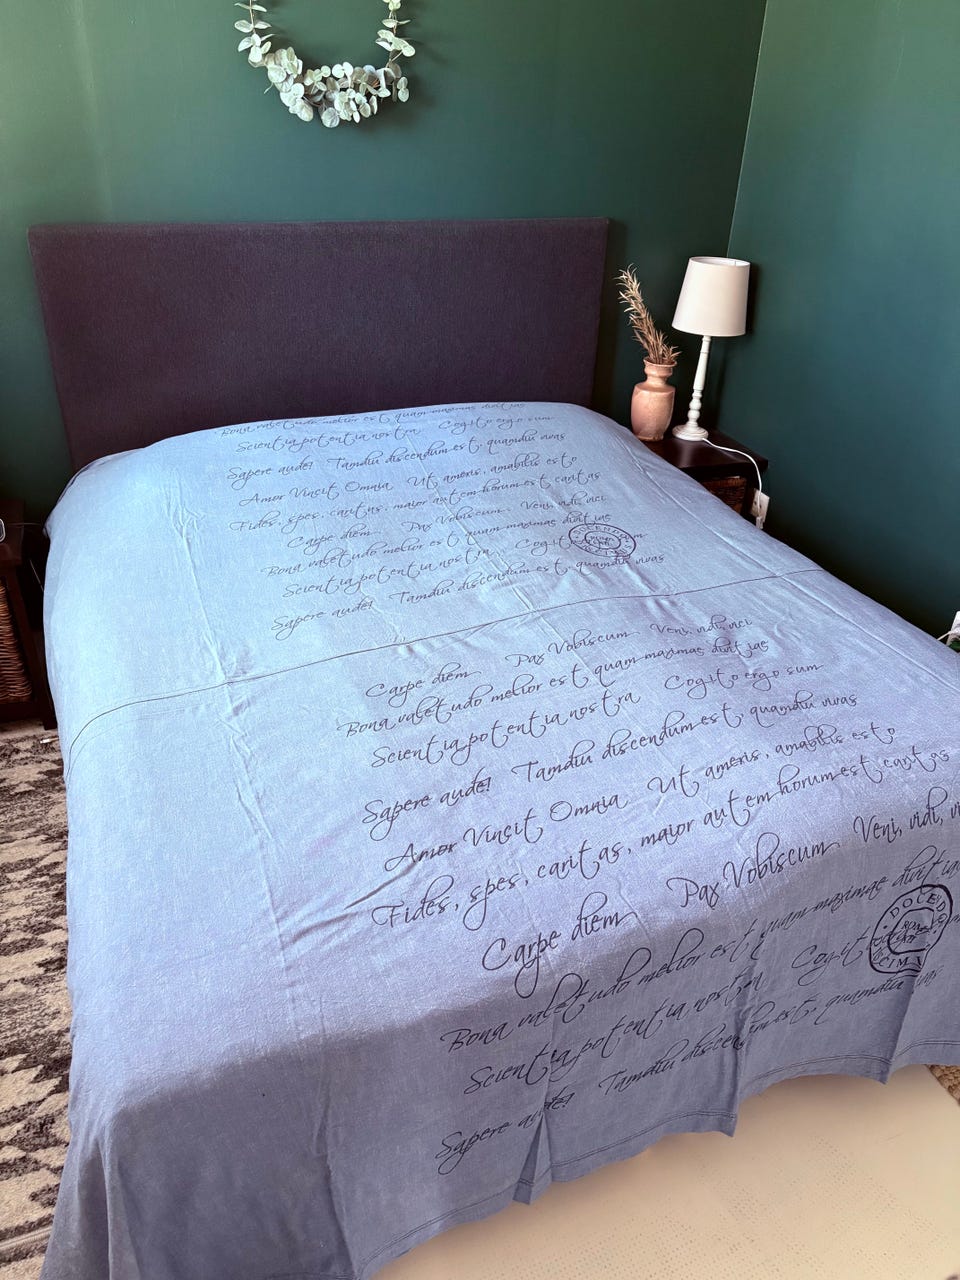 Bona valetudo melior est quam maximae divitiae
Scientia potentia nostra Cogito ergo sum
Sapere aude! Tamdiu discendum est, quamdiu vivas
Amor Vincit Omnia Ut ameris, amabilis esto
Fides, spes, caritas, maior autem horum est caritas
Carpe diem Pax Vobiscum Veni, vidi, vici
Bona valetudo melior est quam maximae divitiae
Scientia potentia nostra Cogit
Sapere aude! Tamdiu discendum est, quamdiu vivas
Carpe diem Pax Vobiscum Veni, vidi, vici
Bona valetudo melior est quam maximae divitiae
Scientia potentia nostra Cogito ergo sum
Sapere aude! Tamdiu discendum est, quamdiu vivas
Amor Vincit Omnia Ut ameris, amabilis esto
Fides, spes, caritas, maior autem horum est caritas
Carpe diem Pax Vobiscum Veni, vidi, vi
Bona valetudo melior est quam maximae divitiae
Scientia potentia nostra Cogit
Sapere aude! Tamdiu discendum est, quamdiu vivas